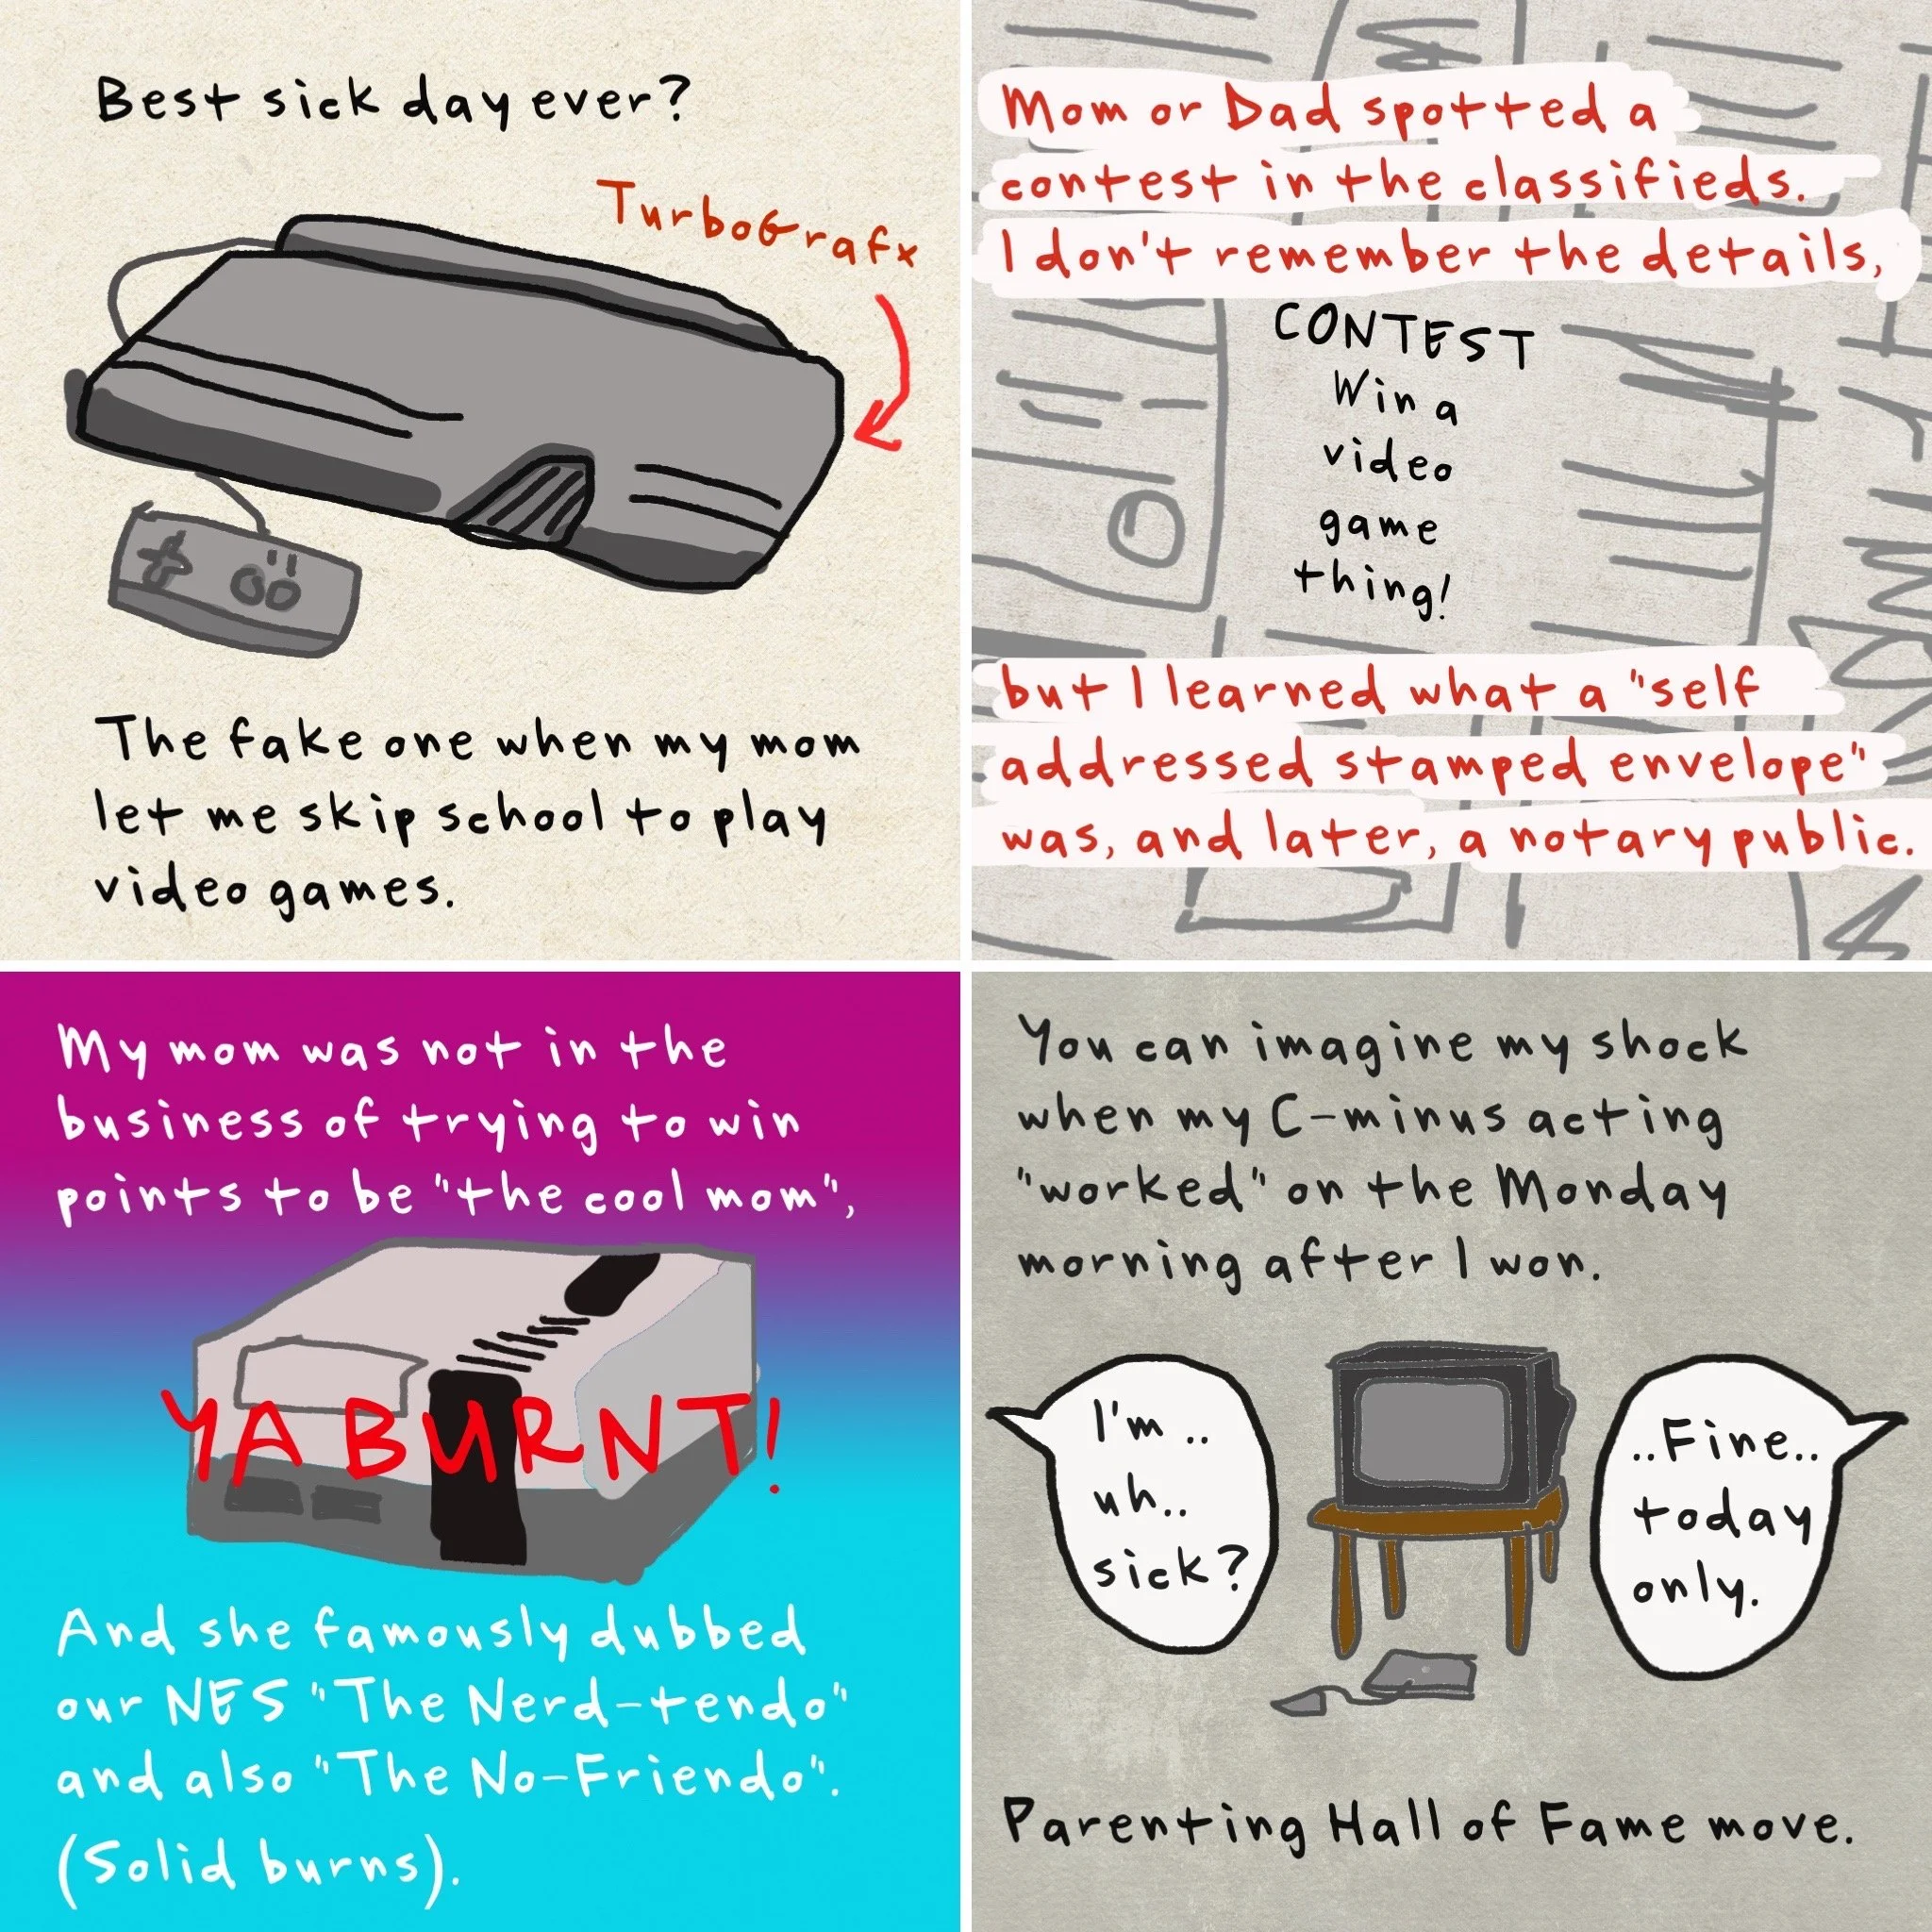 Best sick day ever?
TurboGrafx
The fake one when my mom
let me skip school to play
video games.
Mom or Dad spotted a
contest in the classifieds.
I don't remember the details,
CONTEST
Win a
video
game
thing!
but I learned what a "self
addressed stamped envelope"
was, and later, a notary public.
My mom was not in the
business of trying to win
points to be "the cool mom",
YA BURNT!
And she famously dubbed
our NES "The Nerd-tendo"
and also "The No-Friendo".
(Solid burns).
You can imagine my shock
when my C-minus acting
"worked" on the Monday
morning after I won.
I'm..
uh..
sick?
..Fine..
today
only.
Parenting Hall of Fame move.